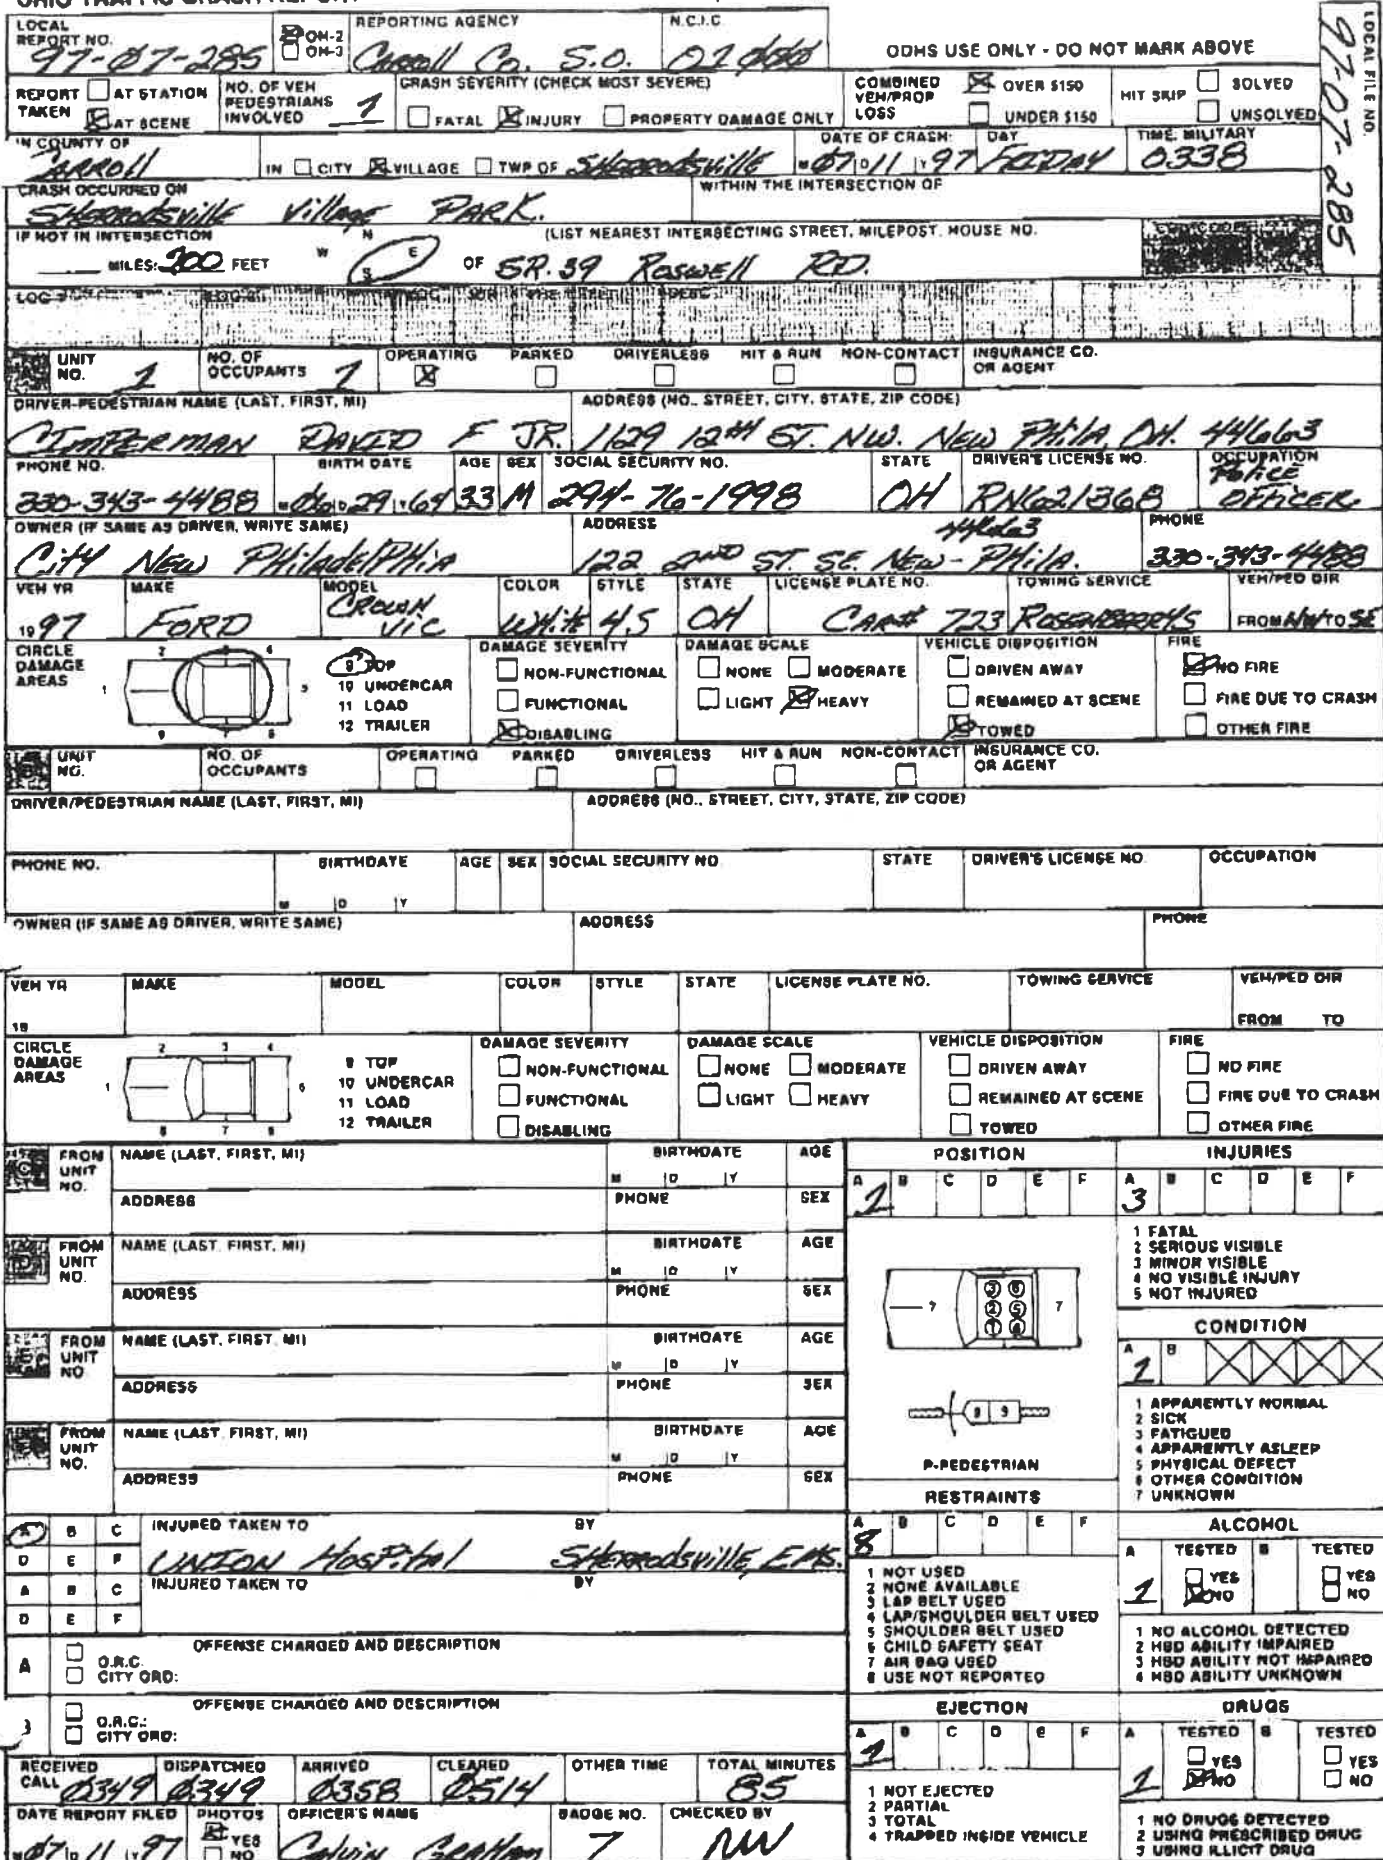 LOCAL REPORT NO. 97-07-285 OH-2 OH-3 REPORTING AGENCY Carroll Co. S.O. N.C.I.C ODHS USE ONLY - DO NOT MARK ABOVE
LOCAL FILE NO. 97-07-285
REPORT TAKEN AT STATION AT SCENE NO. OF VEH PEDESTRIANS INVOLVED 1 CRASH SEVERITY (CHECK MOST SEVERE) FATAL INJURY PROPERTY DAMAGE ONLY COMBINED VEH/PROP LOSS OVER $150 UNDER $150 HIT SKIP SOLVED UNSOLVED
IN COUNTY OF CARROLL IN CITY VILLAGE TWP OF SHERRODSVILLE DATE OF CRASH: M 07 D 11 Y 97 DAY FRIDAY TIME, MILITARY 0338
CRASH OCCURRED ON SHERRODSVILLE Village PARK. WITHIN THE INTERSECTION OF
IF NOT IN INTERSECTION MILES: FEET N W E S OF (LIST NEAREST INTERSECTING STREET, MILEPOST, HOUSE NO. SR. 39 Roswell RD.
UNIT NO. 1 NO. OF OCCUPANTS 1 OPERATING PARKED DRIVERLESS HIT & RUN NON-CONTACT INSURANCE CO. OR AGENT
DRIVER-PEDESTRIAN NAME (LAST, FIRST, MI) ADDRESS (NO., STREET, CITY, STATE, ZIP CODE)
CIMPERMAN DAVID F JR. 1129 12TH ST. NW. NEW PHILA, OH. 44663
PHONE NO. BIRTH DATE AGE SEX SOCIAL SECURITY NO. STATE DRIVER'S LICENSE NO. OCCUPATION
330-343-4488 M 06 D 29 Y 64 33 M 294-76-1998 OH RN621368 POLICE OFFICER.
OWNER (IF SAME AS DRIVER, WRITE SAME) ADDRESS 44663 PHONE
City NEW PHilAdElPHiA 122 2ND ST. SE. NEW-PHila. 330-343-4488
VEH YR MAKE MODEL COLOR STYLE STATE LICENSE PLATE NO. TOWING SERVICE VEH/PED DIR
1997 FORD CROWN Vic White 4S OH CAR# 723 ROSENBERRYS FROM NW TO SE
CIRCLE DAMAGE AREAS 1 2 3 4 5 6 7 8 9 TOP 10 UNDERCAR 11 LOAD 12 TRAILER
DAMAGE SEVERITY NON-FUNCTIONAL FUNCTIONAL DISABLING
DAMAGE SCALE NONE MODERATE LIGHT HEAVY
VEHICLE DISPOSITION DRIVEN AWAY REMAINED AT SCENE TOWED
FIRE NO FIRE FIRE DUE TO CRASH OTHER FIRE
UNIT NO. NO. OF OCCUPANTS OPERATING PARKED DRIVERLESS HIT & RUN NON-CONTACT INSURANCE CO. OR AGENT
DRIVER/PEDESTRIAN NAME (LAST, FIRST, MI) ADDRESS (NO., STREET, CITY, STATE, ZIP CODE)
PHONE NO. BIRTHDATE M D Y AGE SEX SOCIAL SECURITY NO STATE DRIVER'S LICENSE NO. OCCUPATION
OWNER (IF SAME AS DRIVER, WRITE SAME) ADDRESS PHONE
VEH YR 19 MAKE MODEL COLOR STYLE STATE LICENSE PLATE NO. TOWING SERVICE VEH/PED DIR FROM TO
CIRCLE DAMAGE AREAS 1 2 3 4 7 9 TOP 10 UNDERCAR 11 LOAD 12 TRAILER
DAMAGE SEVERITY NON-FUNCTIONAL FUNCTIONAL DISABLING
DAMAGE SCALE NONE MODERATE LIGHT HEAVY
VEHICLE DISPOSITION DRIVEN AWAY REMAINED AT SCENE TOWED
FIRE NO FIRE FIRE DUE TO CRASH OTHER FIRE
FROM UNIT NO. NAME (LAST, FIRST, MI) BIRTHDATE M D Y AGE
ADDRESS PHONE SEX
FROM UNIT NO. NAME (LAST, FIRST, MI) BIRTHDATE M D Y AGE
ADDRESS PHONE SEX
FROM UNIT NO NAME (LAST, FIRST, MI) BIRTHDATE M D Y AGE
ADDRESS PHONE SEX
FROM UNIT NO. NAME (LAST, FIRST, MI) BIRTHDATE M D Y AGE
ADDRESS PHONE SEX
POSITION
A B C D E F
1
7 3 6 2 5 1 4 7
8 9
P-PEDESTRIAN
INJURIES
A B C D E F
3
1 FATAL
2 SERIOUS VISIBLE
3 MINOR VISIBLE
4 NO VISIBLE INJURY
5 NOT INJURED
CONDITION
A B
1
1 APPARENTLY NORMAL
2 SICK
3 FATIGUED
4 APPARENTLY ASLEEP
5 PHYSICAL DEFECT
6 OTHER CONDITION
7 UNKNOWN
A B C D E F INJURED TAKEN TO BY
UNION HosPital SHERRodsville, EMS.
A B C D E F INJURED TAKEN TO BY
A O.R.C. CITY ORD: OFFENSE CHARGED AND DESCRIPTION
O.R.C.: CITY ORD: OFFENSE CHARGED AND DESCRIPTION
RESTRAINTS
A B C D E F
8
1 NOT USED
2 NONE AVAILABLE
3 LAP BELT USED
4 LAP/SHOULDER BELT USED
5 SHOULDER BELT USED
6 CHILD SAFETY SEAT
7 AIR BAG USED
8 USE NOT REPORTED
ALCOHOL
A TESTED B TESTED
1 YES NO YES NO
1 NO ALCOHOL DETECTED
2 HBD ABILITY IMPAIRED
3 HBD ABILITY NOT IMPAIRED
4 HBD ABILITY UNKNOWN
EJECTION
A B C D E F
1
1 NOT EJECTED
2 PARTIAL
3 TOTAL
4 TRAPPED INSIDE VEHICLE
DRUGS
A TESTED B TESTED
1 YES NO YES NO
1 NO DRUGS DETECTED
2 USING PRESCRIBED DRUG
3 USING ILLICIT DRUG
RECEIVED CALL 0349 DISPATCHED 0349 ARRIVED 0358 CLEARED 0514 OTHER TIME TOTAL MINUTES 85
DATE REPORT FILED M 07 D 11 Y 97 PHOTOS YES NO OFFICER'S NAME Calvin GRAHAM BADGE NO. 7 CHECKED BY